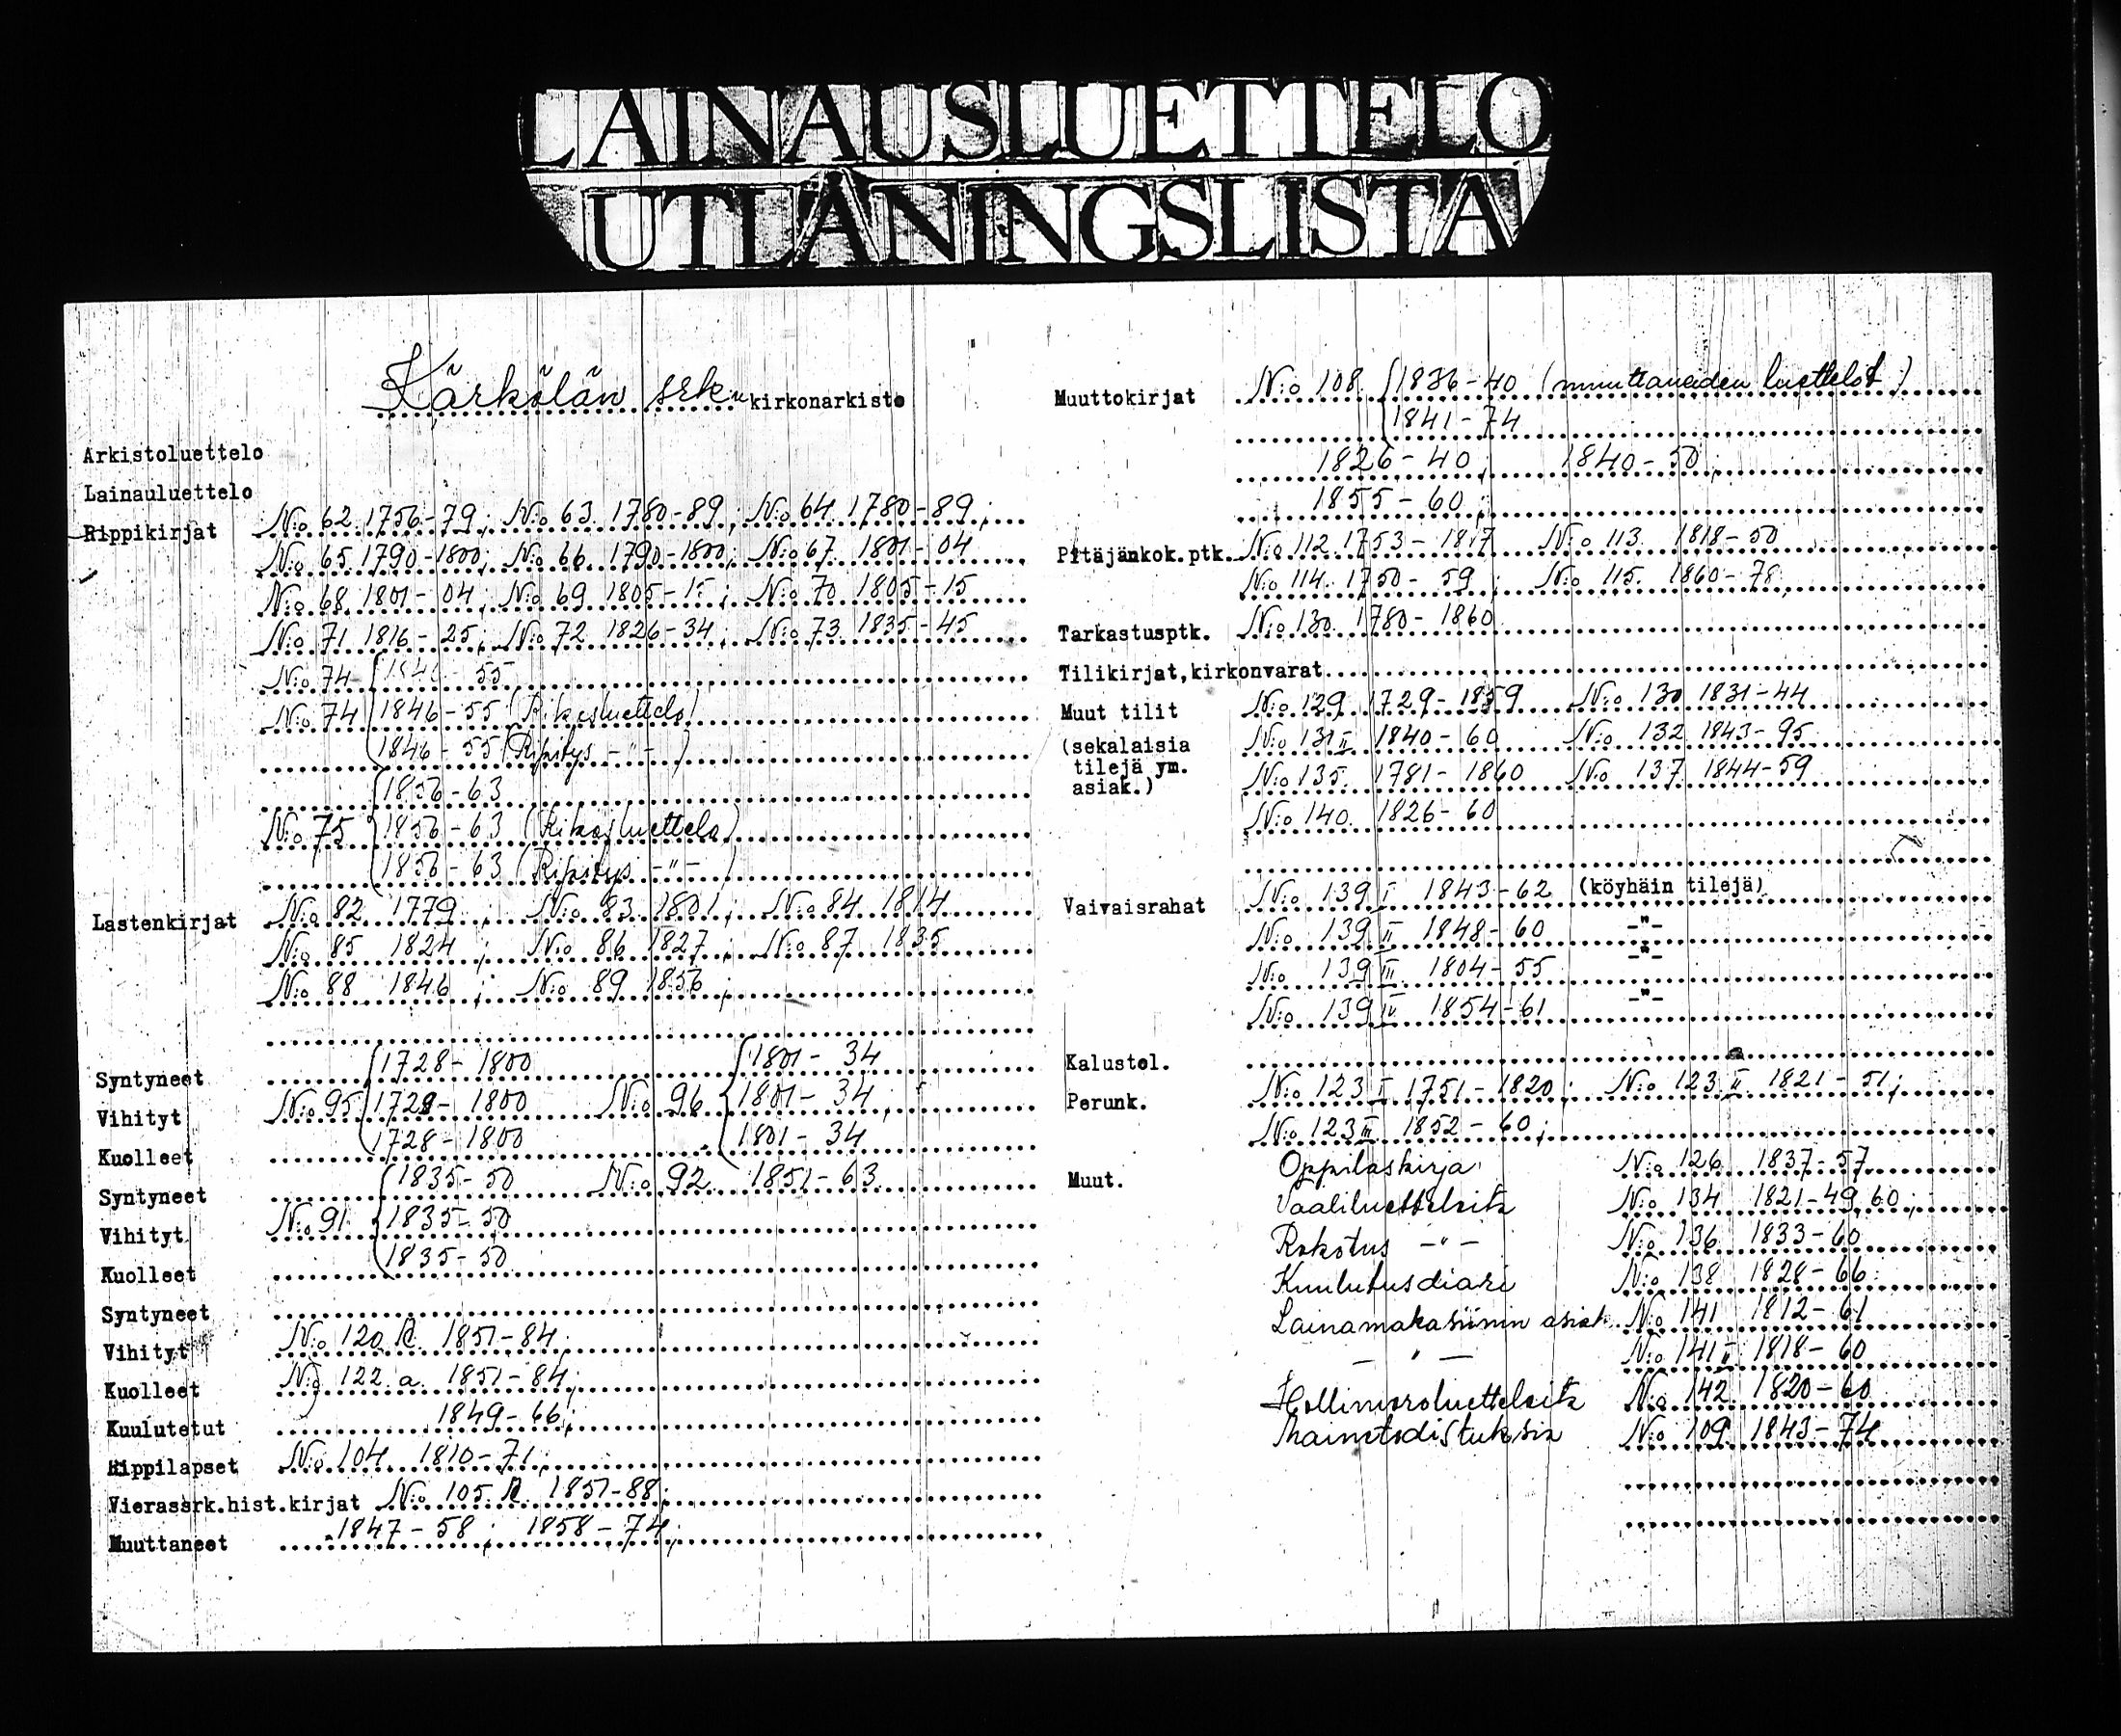 LAINAUSLUETTELO
UTLÅNINGSLISTA
Kärkölän srk:n kirkonarkisto
Arkistoluettelo
Lainauluettelo
Rippikirjat N:o 62 1756-79; N:o 63 1780-89; N:o 64 1780-89;
N:o 65 1790-1800; N:o 66 1790-1800; N:o 67 1801-04
N:o 68 1801-04; N:o 69 1805-15; N:o 70 1805-15
N:o 71 1816-25; N:o 72 1826-34; N:o 73 1835-45
N:o 74 1846-55
N:o 74 1846-55 (Rikosluettelo)
1846-55 (Ripitys -"-)
1856-63
N:o 75 1856-63 (Rikosluettelo)
1856-63 (Ripitys -"-)
Lastenkirjat N:o 82 1779; N:o 83 1801; N:o 84 1814
N:o 85 1824; N:o 86 1827; N:o 87 1835
N:o 88 1846; N:o 89 1856;
Syntyneet 1728-1800 1801-34
Vihityt N:o 95 1728-1800 N:o 96 1801-34;
Kuolleet 1728-1800 1801-34
Syntyneet 1835-50 N:o 92 1851-63
Vihityt N:o 91 1835-50
Kuolleet 1835-50
Syntyneet
Vihityt N:o 120 1851-84;
Kuolleet N:o 122 a. 1851-84;
Kuulutetut 1849-66;
Rippilapset N:o 104 1810-71;
Vierassrk.hist.kirjat N:o 105 1851-88;
Muuttaneet 1847-58; 1858-74;
Muuttokirjat N:o 108 1836-40 (muuttaneiden luettelot)
1841-74
1826-40; 1840-50;
1855-60;
Pitäjänkok.ptk. N:o 112 1753-1817 N:o 113 1818-50
N:o 114 1750-59; N:o 115 1860-78;
Tarkastusptk. N:o 130 1780-1860
Tilikirjat,kirkonvarat
Muut tilit N:o 129 1729-1859 N:o 130 1831-44
(sekalaisia N:o 131 II 1840-60 N:o 132 1843-95
tilejä ym. N:o 135 1781-1860 N:o 137 1844-59
asiak.)
N:o 140 1826-60
Vaivaisrahat N:o 139 I 1843-62 (köyhäin tilejä)
N:o 139 II 1848-60 -"-
N:o 139 III 1804-55 -"-
N:o 139 IV 1854-61 -"-
Kalustol.
Perunk. N:o 123 I 1751-1820; N:o 123 II 1821-51;
N:o 123 III 1852-60;
Muut. Oppilaskirja N:o 126 1837-57
Vaaliluetteloita N:o 134 1821-49,60;
Rokotus -"- N:o 136 1833-60
Kuulutusdiari N:o 138 1828-66
Lainamakasiinin asiak. N:o 141 1812-61
-"- N:o 141 II 1818-60
Hollimoroluetteloita N:o 142 1820-60
Mainetodistuksia N:o 109 1843-74